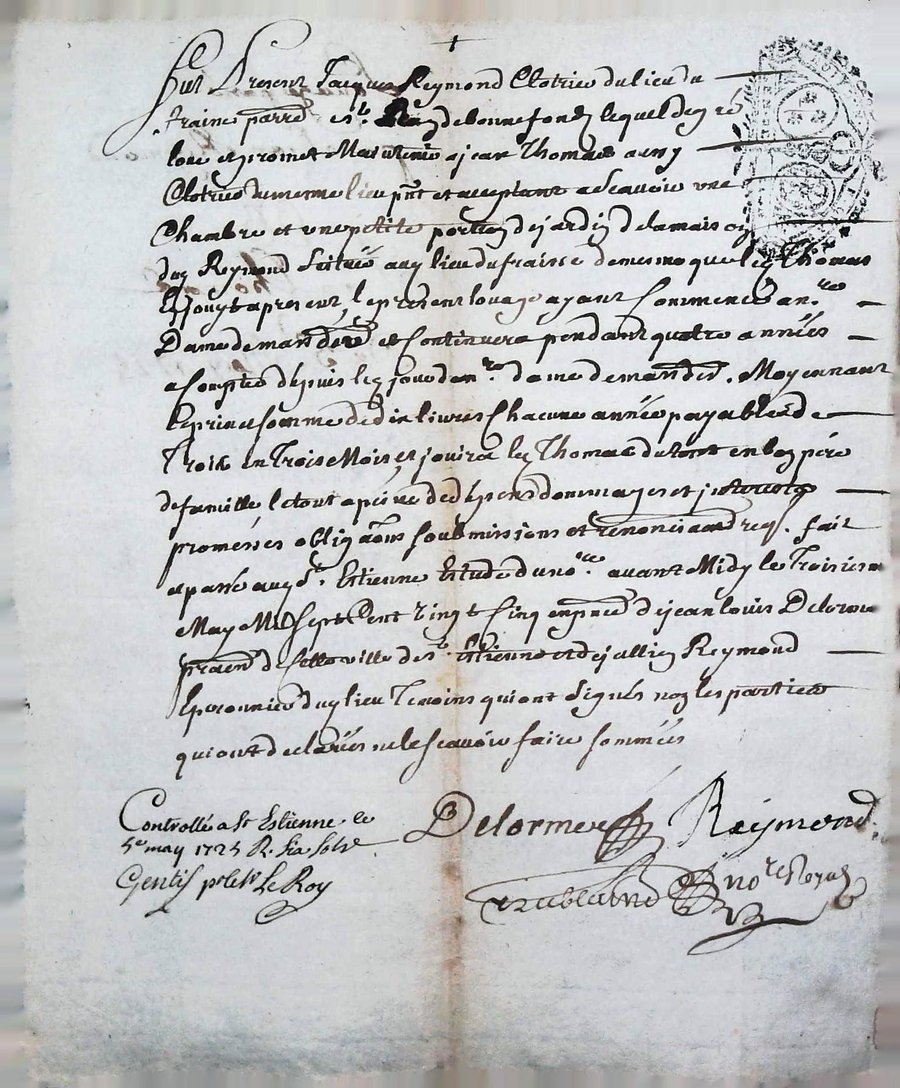 fut Present Jacques Reymond Clotrier du lieu du
fraine parre st. de bonnefond lequel de gré
loue et promet Maintenir a jean Thomas aussy
Clotrier du mesme lieu pnt et acceptant a scavoir une
Chambre et une petite portion de jardin de la maison
dud Reymond scitués aud lieu du fraisse de mesme que led Thomas
En jouyt a present, le present louage ayant Commencé a nre
Dame de mars derer et Continuera pendant quatre années
a Compter depuis led jour de nre dame de mars der. Moyennant
le prix et somme de dix livres Chacune année payables de
Trois en Trois Mois, et jouira led Thomas du tout en bon pere
de famille le tout a peine de depens dommages et interests
promesses obligaons soubmissions et renoncisaons req. fait
et passé aud St. Estienne Estude du nore avant Midy le Troisieme
May Mil sept Cent vingt Cinq en pnce de jean louis Delorme
praen de cette ville de St. Estienne et de Reymond
Eperonnier dud lieu Temoins qui ont signés non les parties
qui ont declarés ne le scavoir faire sommées
Controllé a St Estienne le
5e may 1725 R. Six sols
Gentil pr le Roy
Delorme
Reymond
nore Royal